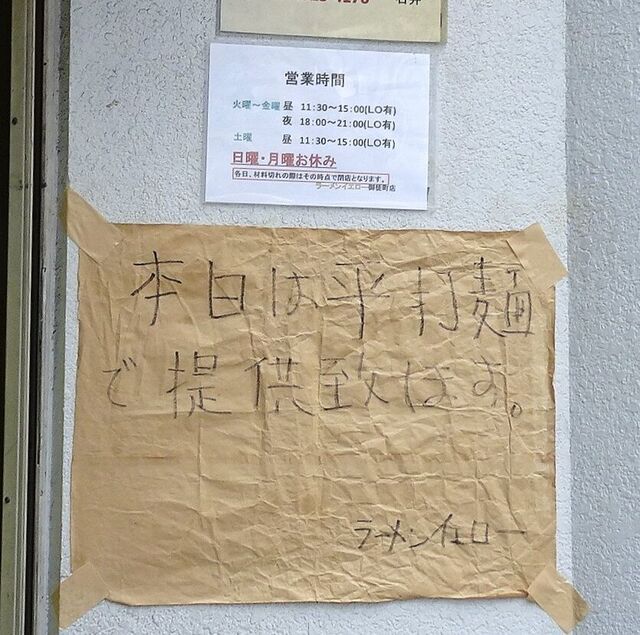 石井
営業時間
火曜～金曜 昼 11:30～15:00(LO有)
夜 18:00～21:00(LO有)
土曜 昼 11:30～15:00(LO有)
日曜・月曜お休み
各日、材料切れの際はその時点で閉店となります。
ラーメンイエロー御徒町店
本日は平打麺
で提供致します。
ラーメンイエロー